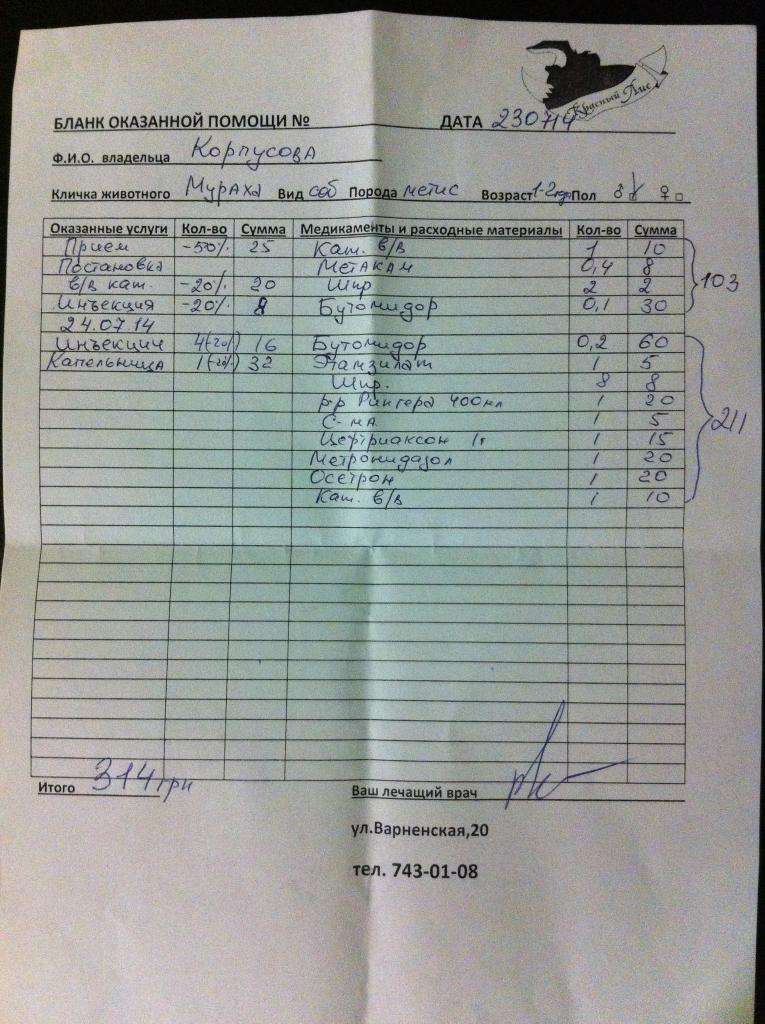 Красный Лис
БЛАНК ОКАЗАННОЙ ПОМОЩИ № ДАТА 230714
Ф.И.О. владельца Корпусова
Кличка животного Мураха Вид соб Порода метис Возраст 1-2года Пол ♂ ♀
Оказанные услуги Кол-во Сумма Медикаменты и расходные материалы Кол-во Сумма
Прием -50% 25 Кат. в/в 1 10
Постановка Метакам 0,4 8
в/в кат. -20% 20 Шпр 2 2 103
Инъекция -20% 8 Бутомидор 0,1 30
24.07.14
Инъекции 4(-20%) 16 Бутомидор 0,2 60
Капельница 1(-20%) 32 Этамзилат 1 5
Шпр. 8 8
р-р Рингера 400мл 1 20
С-ма 1 5 211
Цефтриаксон 1г 1 15
Метронидазол 1 20
Осетрон 1 20
Кат. в/в 1 10
Итого 314грн Ваш лечащий врач
ул.Варненская,20
тел. 743-01-08